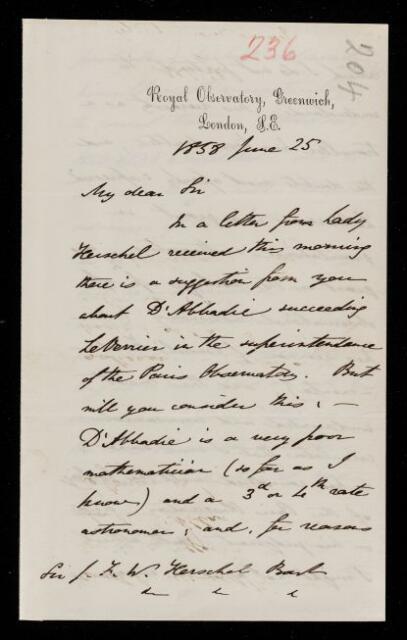 236
204
Royal Observatory, Greenwich,
London, S.E.
1858 June 25
My dear Sir
In a letter from Lady
Herschel received this morning
there is a suggestion from you
about D'Abbadie succeeding
LeVerrier in the superintendence
of the Paris Observatory. But
will you consider this, —
D'Abbadie is a very poor
mathematician (so far as I
know) and a 3d or 4th rate
astronomer, and, for reasons
Sir J. F. W. Herschel Bart